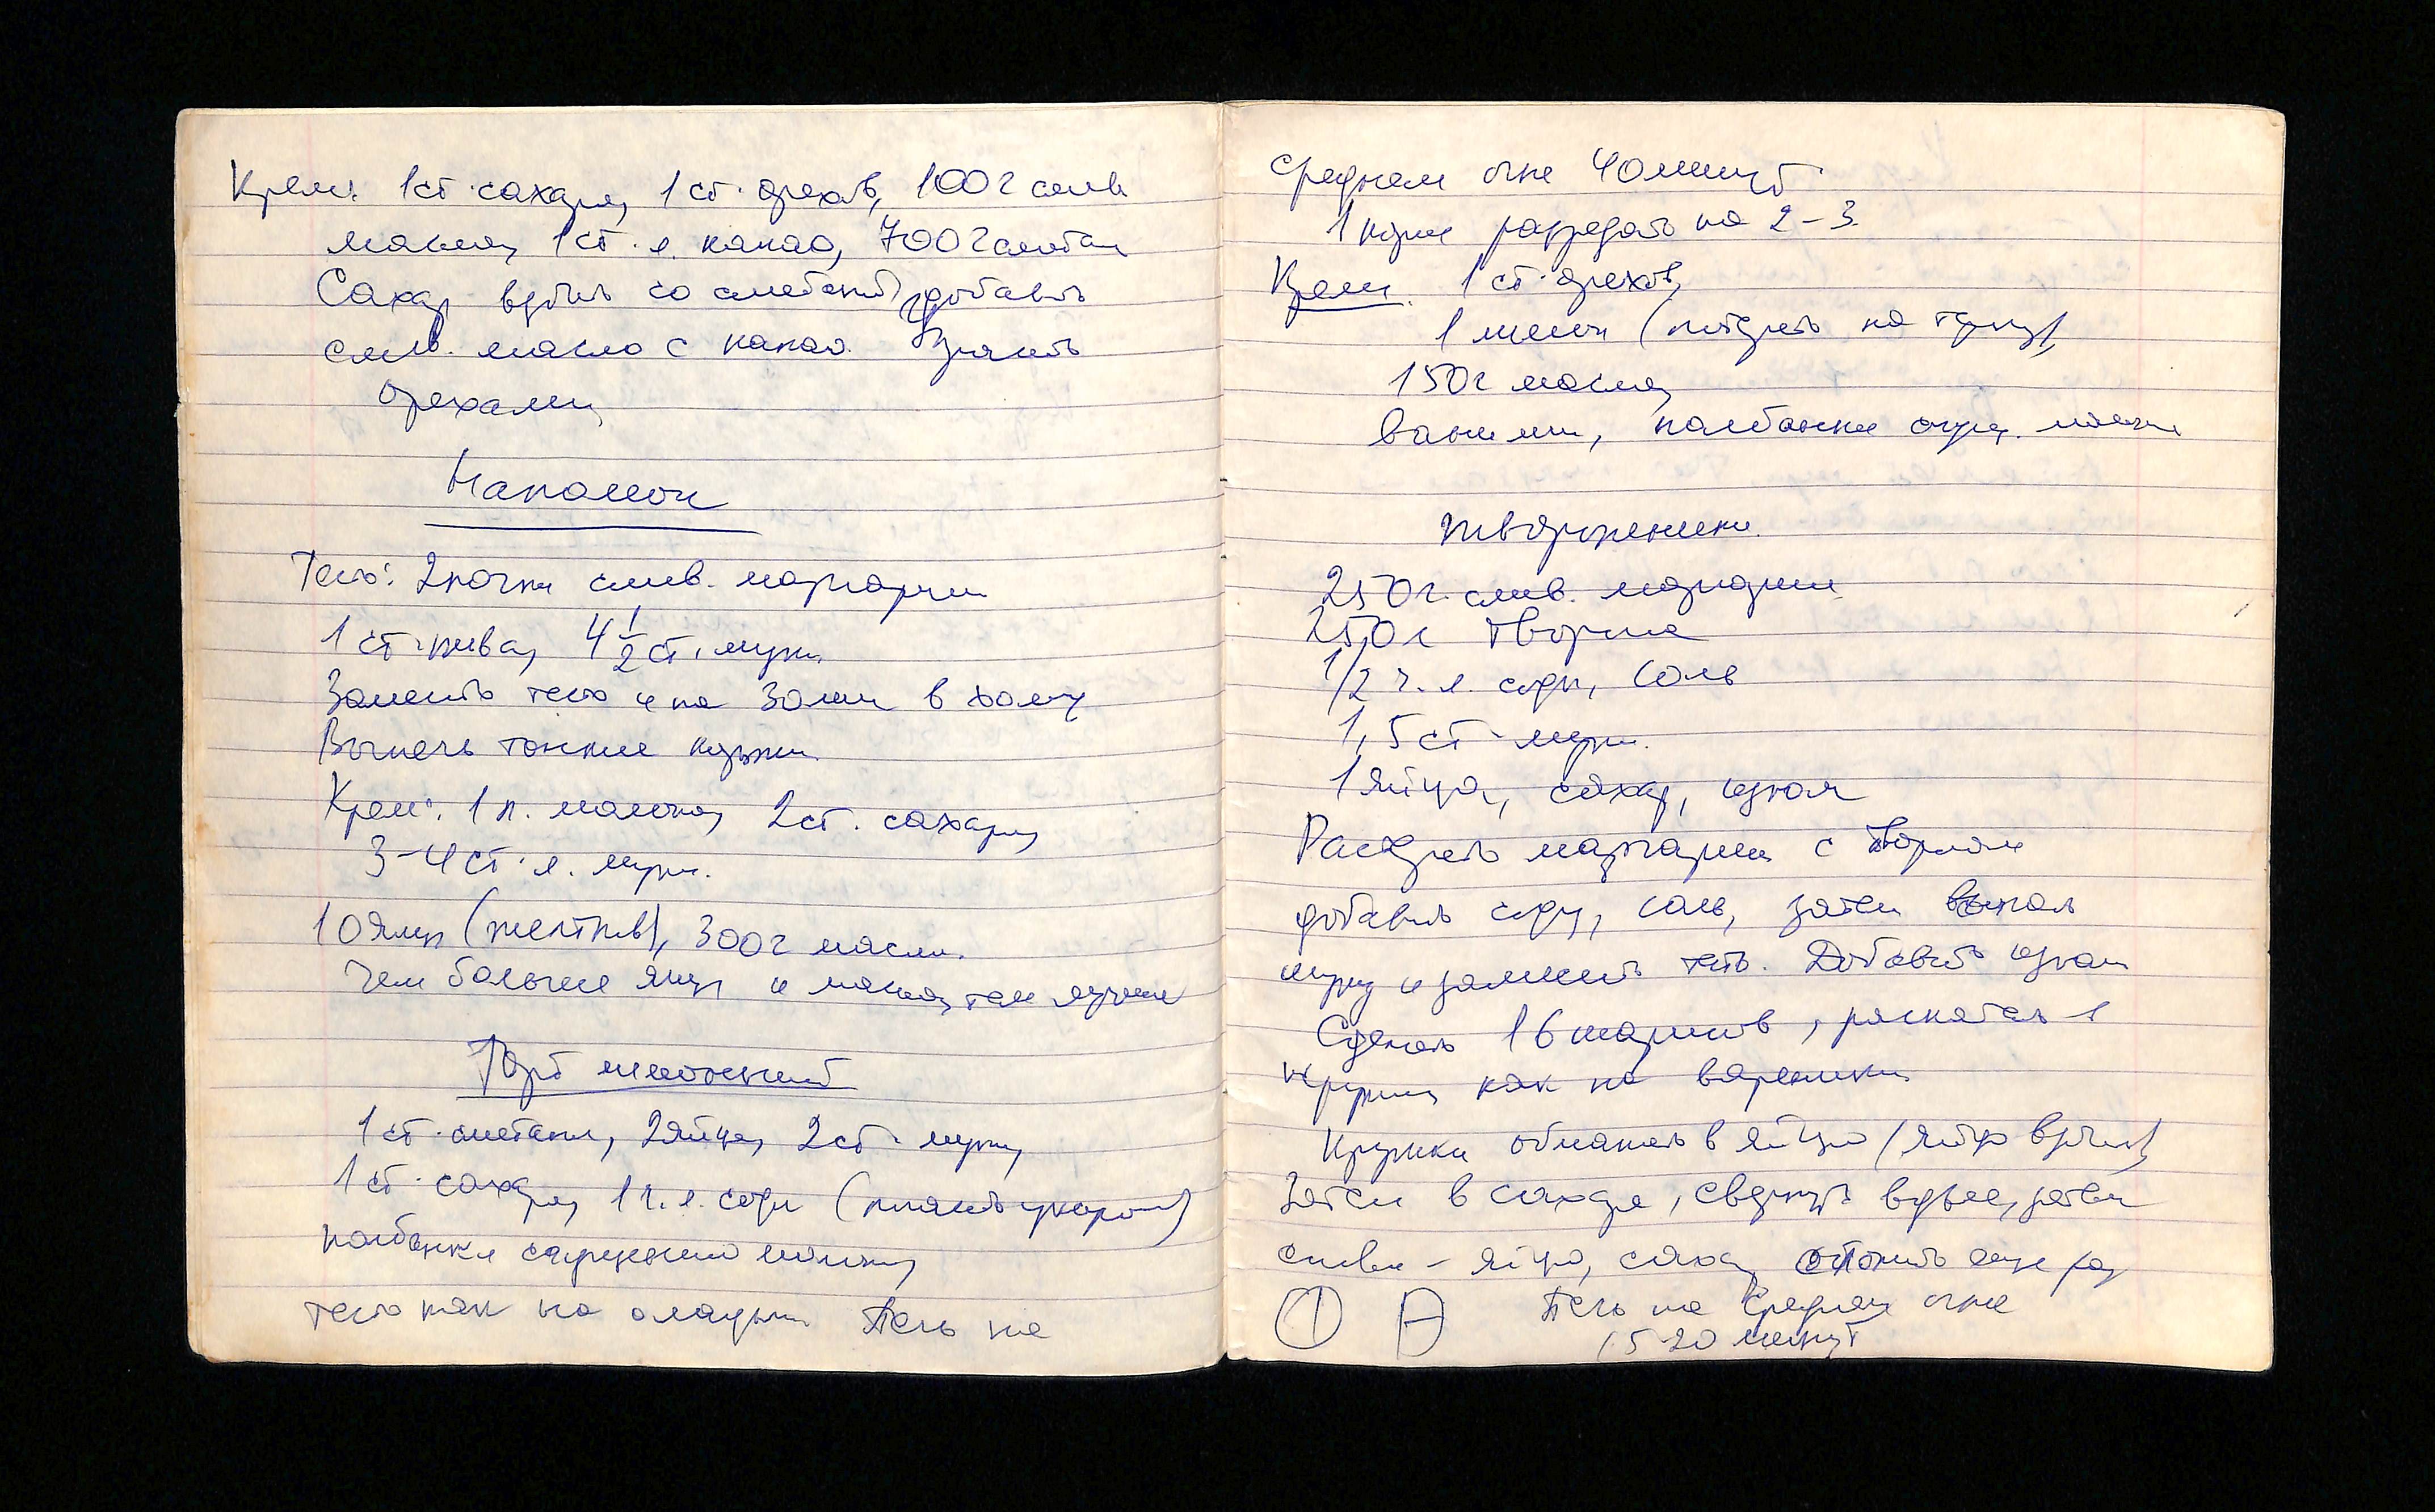 Крем: 1ст. сахара, 1ст. орехов, 100г слив
масла, 1ст. л. какао, 700г сметан
Сахар взбить со сметаной, добавить
слив. масло с какао. Украсить
орехами
Наполеон
Тесто: 2 пачки слив. маргарин
1 ст. пива, 4 1/2 ст. муки
Замесить тесто и на 30 мин в холод
Выпечь тонкие коржи
Крем: 1 л. молока, 2ст. сахара,
3-4 ст. л. муки.
10 яиц (желтков), 300г масла.
Чем больше яиц и масла, тем лучше
Торт лимонный
1ст. сметаны, 2 яйца, 2ст. муки,
1 ст. сахара, 1 ч. л. соды (погасить уксусом)
полбанки сгущенного молока,
тесто как на оладьи. Печь на
среднем огне 40 минут
1 корж разрезать на 2-3.
Крем. 1 ст. орехов,
1 лимон (потереть на терку),
150г масла,
ванилин, полбанки сгущ. молока
Творожники.
250г. слив. маргарин
250г творога
1/2 ч. л. соды, соль
1,5 ст. муки.
1 яйцо, сахар, изюм
Растереть маргарин с творогом
добавить соду, соль, затем
муку и замесить тесто. Добавить изюм
Сделать 16 шариков, раскатать в
кружки как на вареники
Кружки обмакать в яйцо (яйцо взбить)
Затем в сахаре, свернуть вдвое, затем
снова - яйцо, сахар, еще раз
Печь на среднем огне
15-20 минут